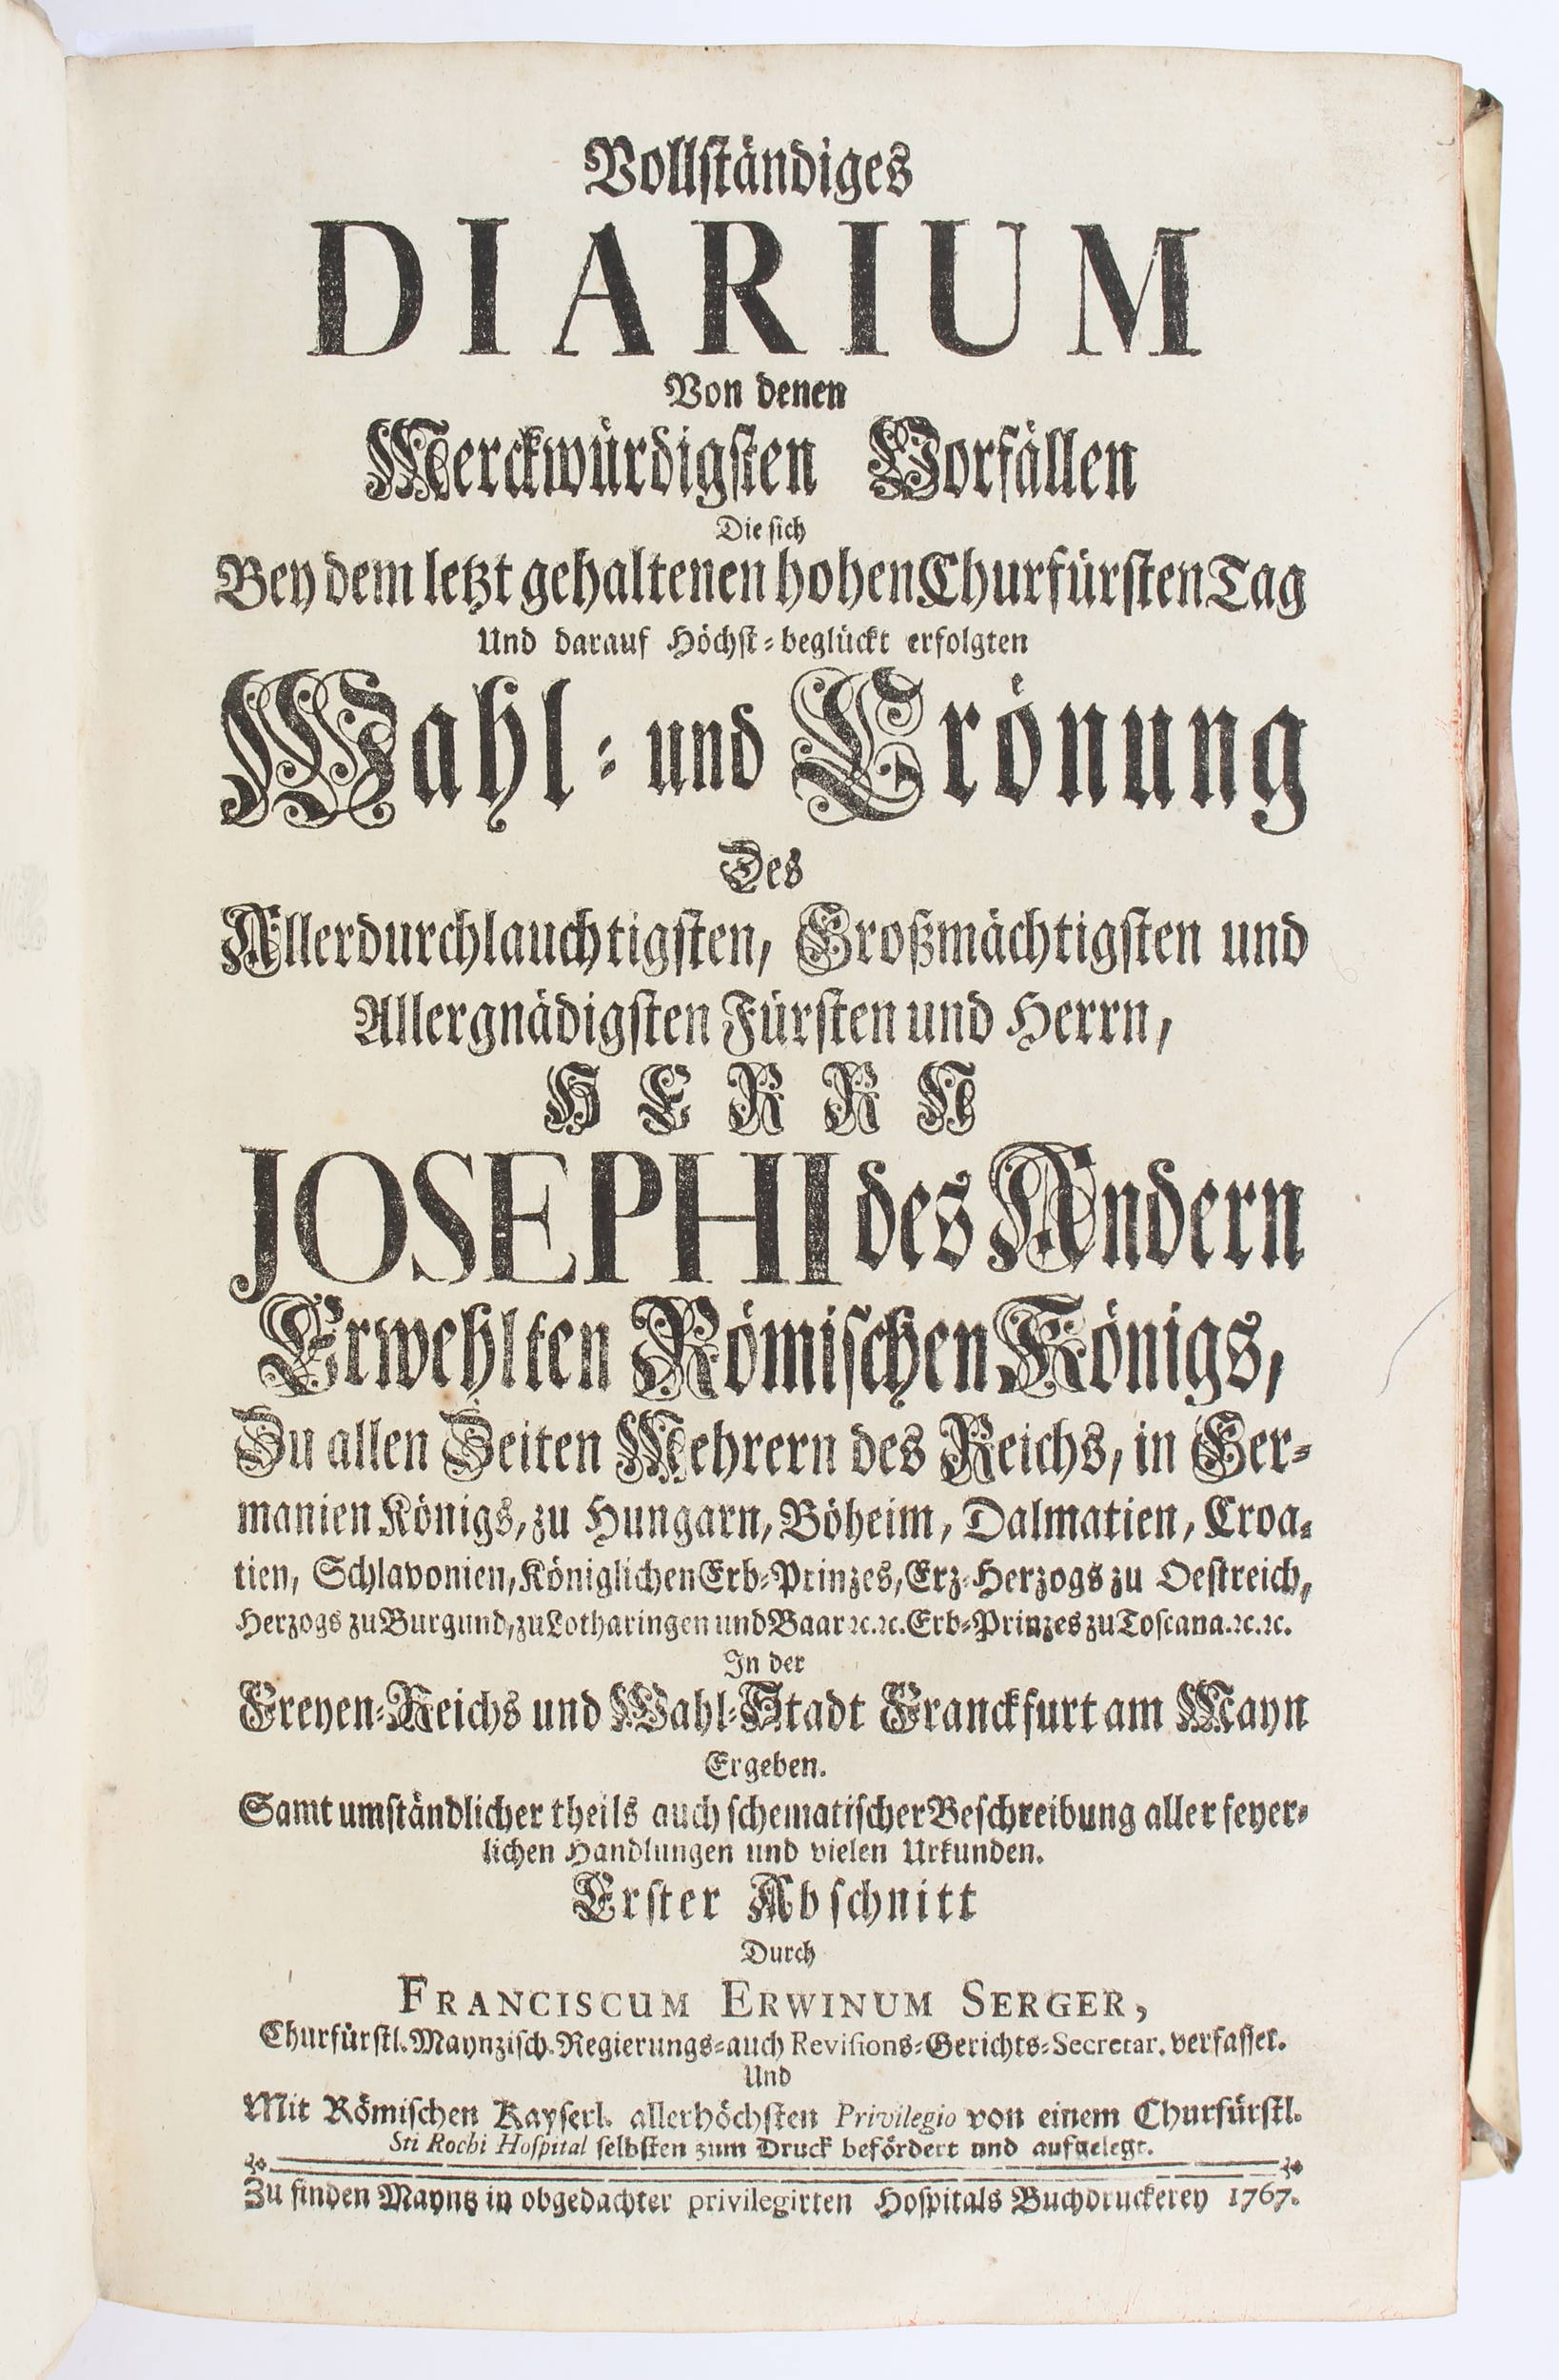 Vollständiges
DIARIUM
Von denen
Merckwürdigsten Vorfällen
Die sich
Bey dem letzt gehaltenen hohen Churfürsten Tag
Und darauf Höchst-beglückt erfolgten
Wahl- und Crönung
Des
Allerdurchlauchtigsten, Großmächtigsten und
Allergnädigsten Fürsten und Herrn,
HERRN
JOSEPHI des Andern
Erwehlten Römischen Königs,
Zu allen Zeiten Mehrern des Reichs, in Ger-
manien Königs, zu Hungarn, Böheim, Dalmatien, Croa-
tien, Schlavonien, Königlichen Erb-Prinzes, Erz-Herzogs zu Oestreich,
Herzogs zu Burgund, zu Lotharingen und Baar ꝛc. ꝛc. Erb-Prinzes zu Toscana. ꝛc. ꝛc.
In der
Freyen-Reichs und Wahl-Stadt Franckfurt am Mayn
Ergeben.
Samt umständlicher theils auch schematischer Beschreibung aller feyer-
lichen Handlungen und vielen Urkunden.
Erster Abschnitt
Durch
FRANCISCUM ERWINUM SERGER,
Churfürstl. Maynzisch. Regierungs-auch Revisions-Gerichts-Secretar. verfasset.
Und
Mit Römischen Kayserl. allerhöchsten Privilegio von einem Churfürstl.
Sti Rochi Hospital selbsten zum Druck befördert und aufgelegt.
Zu finden Mayntz in obgedachter privilegirten Hospitals Buchdruckerey 1767.